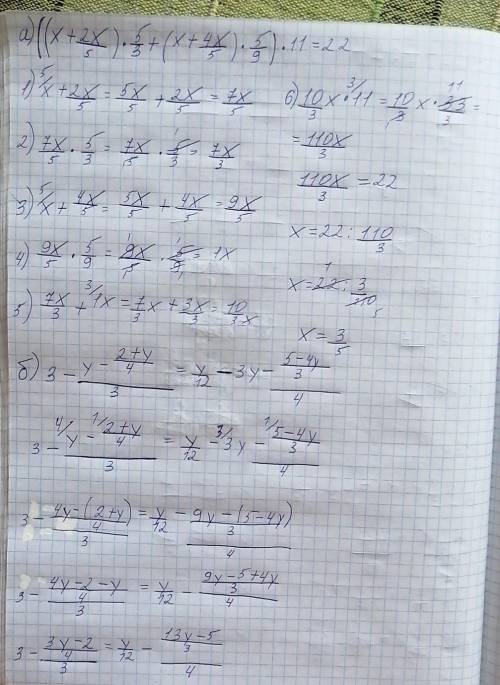 а) ((x + 2x/5) · 5/3 + (x + 4x/5) · 5/9) · 11 = 22
1) ⁵⁄x + 2x/5 = 5x/5 + 2x/5 = 7x/5
2) 7x/5 · 5/3 = 7x/5 · 5/3 = 7x/3
3) ⁵⁄x + 4x/5 = 5x/5 + 4x/5 = 9x/5
4) 9x/5 · 5/9 = 9x/5 · 5/9 = 1x
5) 7x/3 + ³⁄1x = 7/3 x + 3x/3 = 10/3 x
6) 10/3 x · ³⁄11 = 10/3 x · 33/3 =
= 110x/3
110x/3 = 22
x = 22 : 110/3
x = 22 : 3/110
x = 3/5
б) 3 - (y - (2+y)/4)/3 = y/12 - (3y - (5-4y)/3)/4
3 - (⁴⁄y - ¹⁄(2+y)/4)/3 = y/12 - (³⁄3y - ¹⁄(5-4y)/3)/4
3 - ((4y-(2+y))/4)/3 = y/12 - ((9y-(5-4y))/3)/4
3 - ((4y-2-y)/4)/3 = y/12 - ((9y-5+4y)/3)/4
3 - ((3y-2)/4)/3 = y/12 - ((13y-5)/3)/4